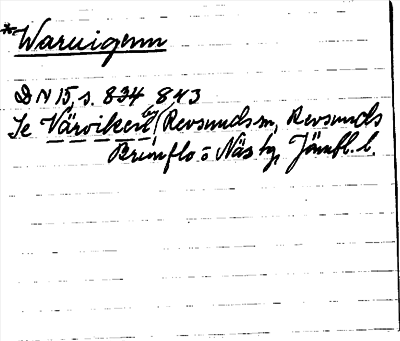 *Waruigenn
DN 15, s. 834, 843
Se Värviken, Revsunds sn, Revsunds
Brunflo o Näs tg, Jämtl. l.